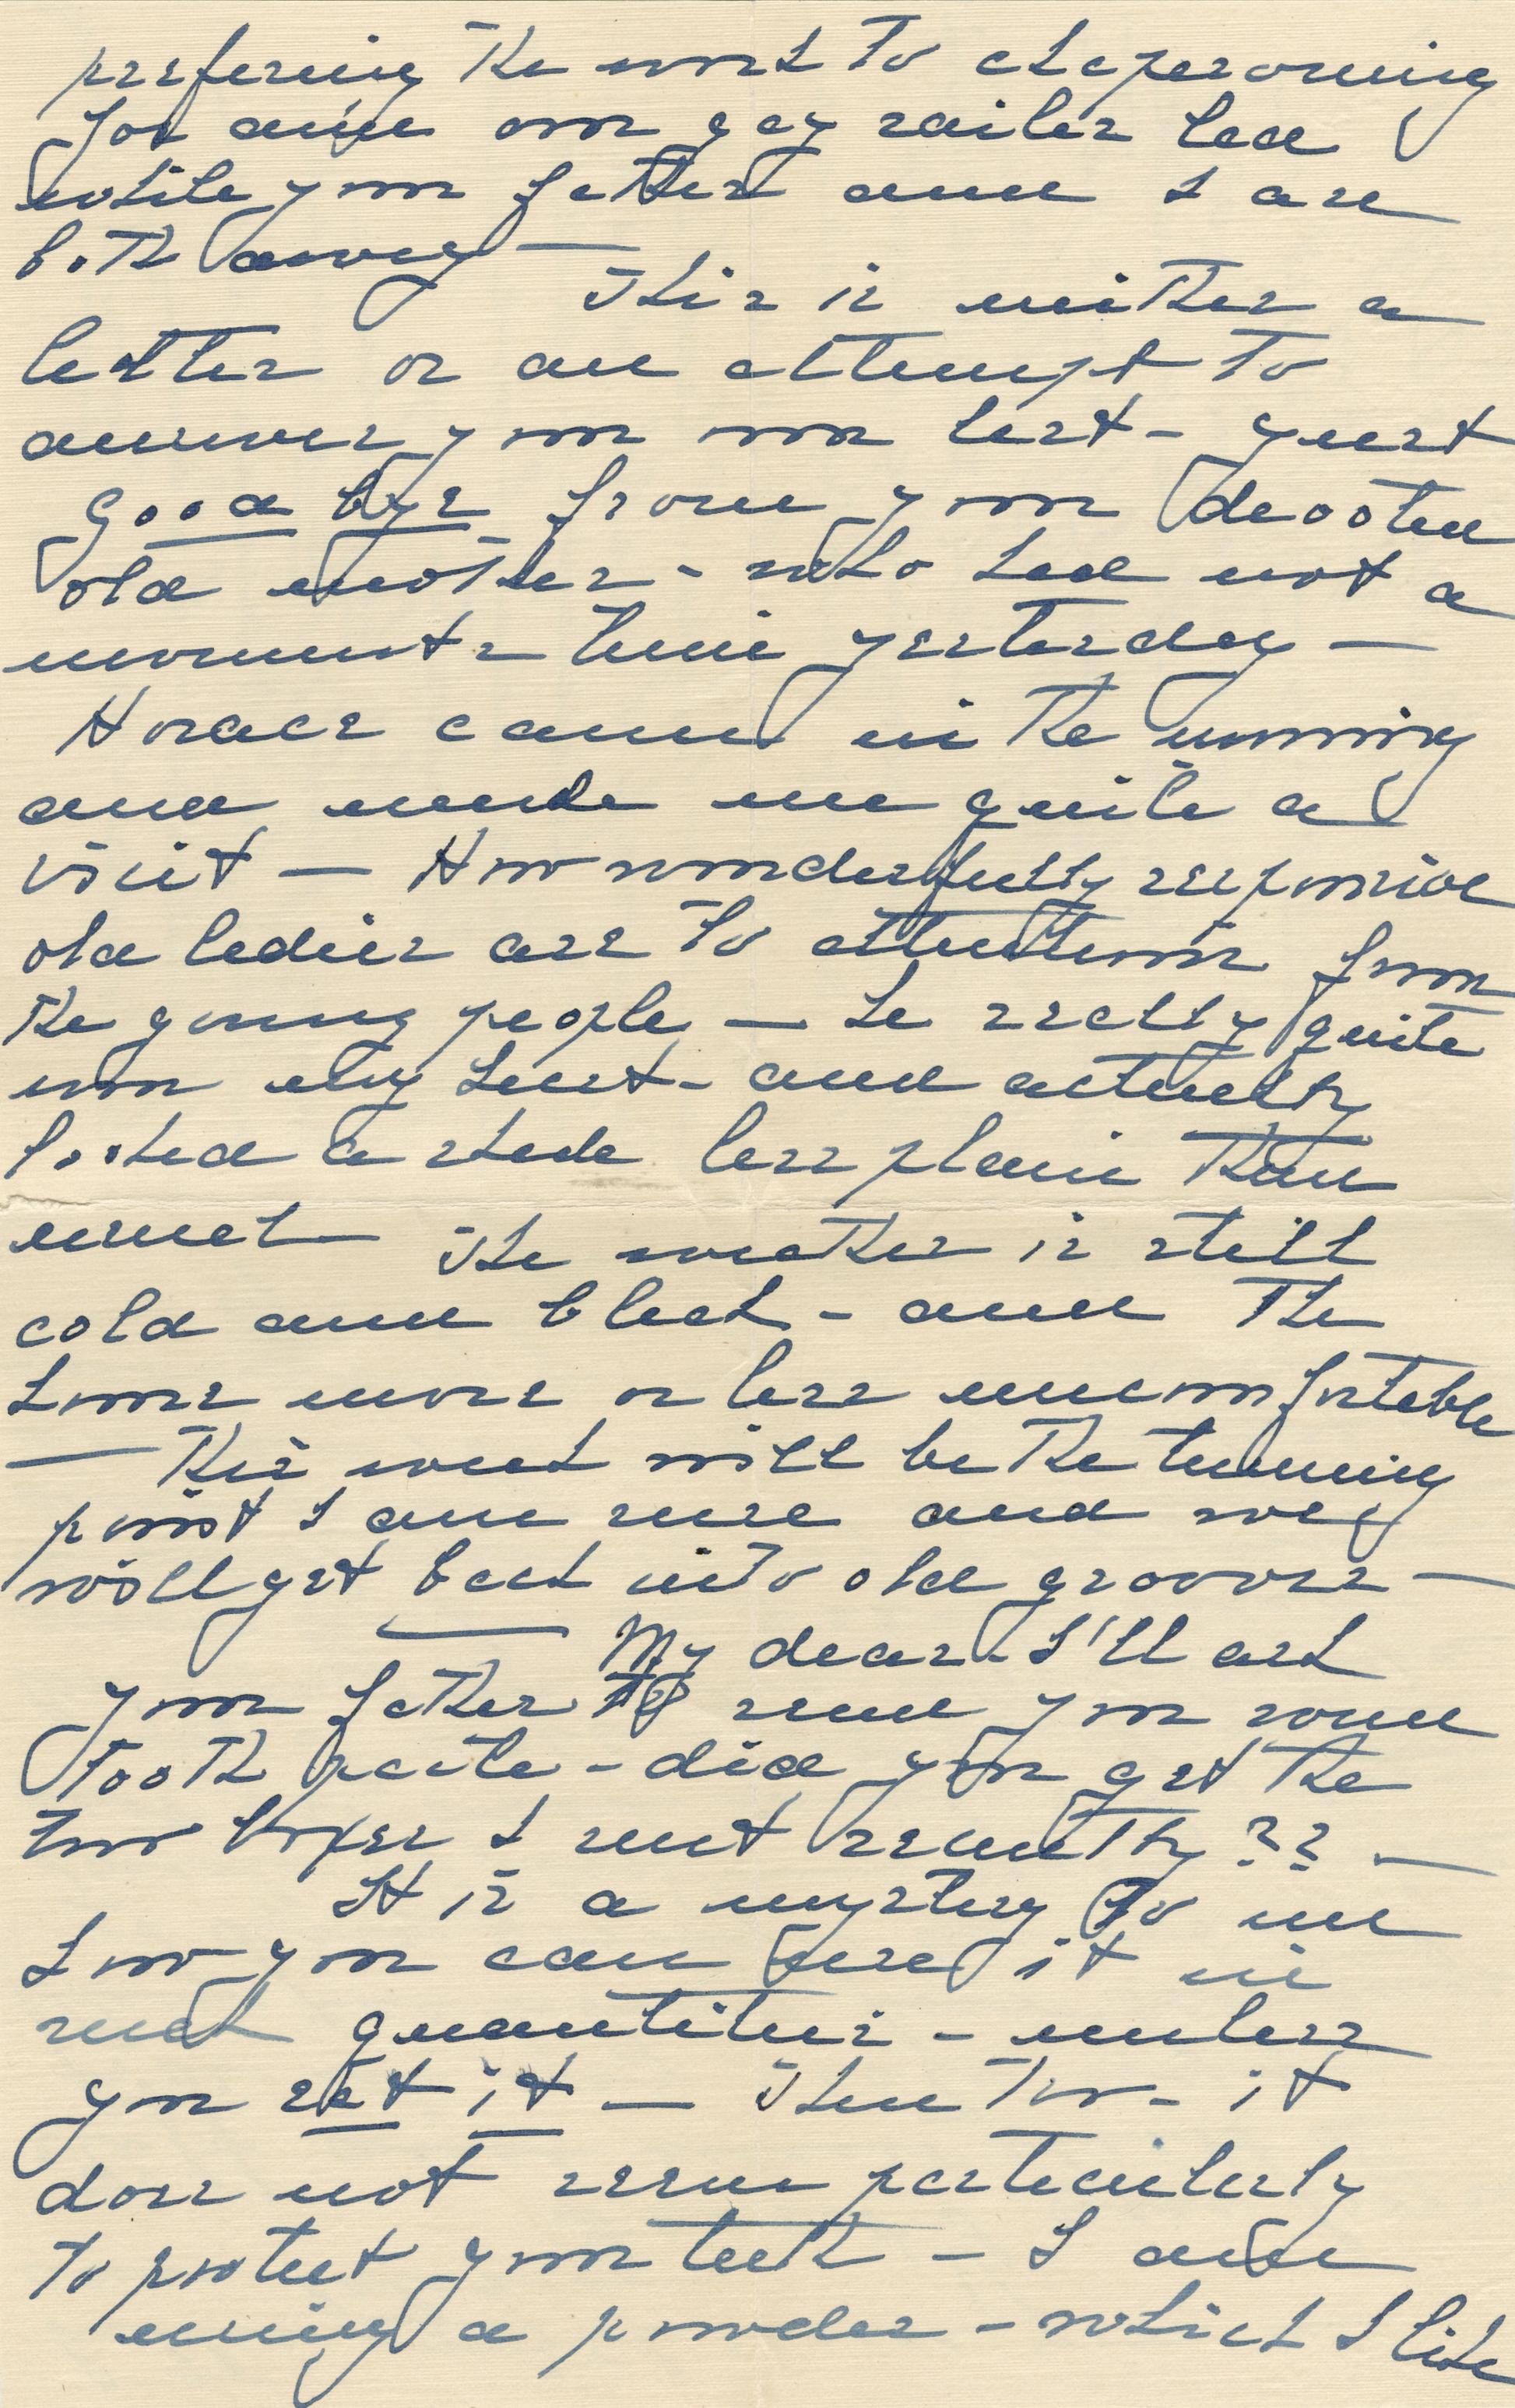 prefering the work to chaperoning
you and our gay sailor lad
while your father and I are
both away —
This is neither a
letter or an attempt to
answer your last - just
good bye from your devoted
old mother - who had not a
moments time yesterday —
Horace came in the morning
and made me quite a
visit — How wonderfully responsive
old ladies are to attention from
the young people — he really quite
won my heart - and actually
looked a shade less plain than
usual
The weather is still
cold and bleak - and the
house more or less uncomfortable
— This week will be the turning
point I am sure and we
will get back into old grooves —
My dear - I'll ask
your father to send you some
tooth paste - did you get the
two boxes I sent recently ?? —
It is a mystery to me
how you can use it in
such quantities - unless
you eat it — Then too - it
does not seem particularly
to protect your teeth - I am
using a powder - which I like